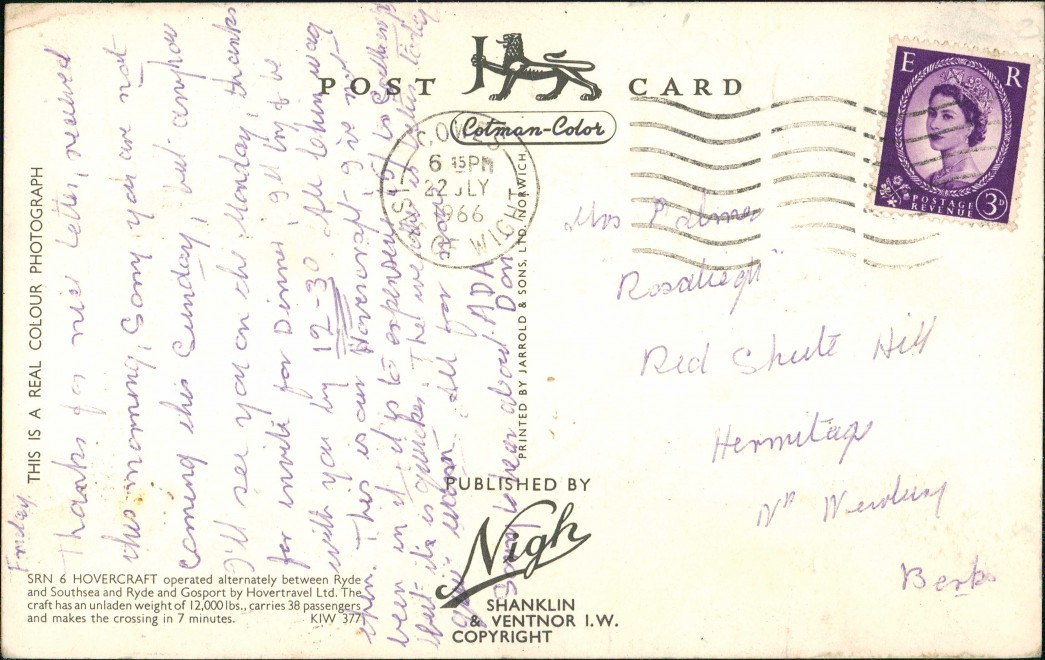 POST CARD
Cotman-Color
COWES
6 15PM
22 JLY
1966
ISLE OF WIGHT
E R
POSTAGE
REVENUE
3D
THIS IS A REAL COLOUR PHOTOGRAPH
Friday
Thanks for nice letter, received
this morning, Sorry you are not
coming this Sunday, but anyhow
I'll see you on the Monday, thanks
for invite for Dinner, I'll try & be
with you by 12-30. All being well
then. This is our Hovercraft - I've not
been in it it is to expensive
but it is quicker. The weather today
is warm. All for now
Sorry to hear about ADA
Don
Mrs Palmer
Rosaliegh
Red Shute Hill
Hermitage
Nr Newbury
Berks
PRINTED BY JARROLD & SONS, LTD. NORWICH
PUBLISHED BY
Nigh
SHANKLIN
& VENTNOR I.W.
COPYRIGHT
SRN 6 HOVERCRAFT operated alternately between Ryde
and Southsea and Ryde and Gosport by Hovertravel Ltd. The
craft has an unladen weight of 12,000 lbs., carries 38 passengers
and makes the crossing in 7 minutes. KIW 377